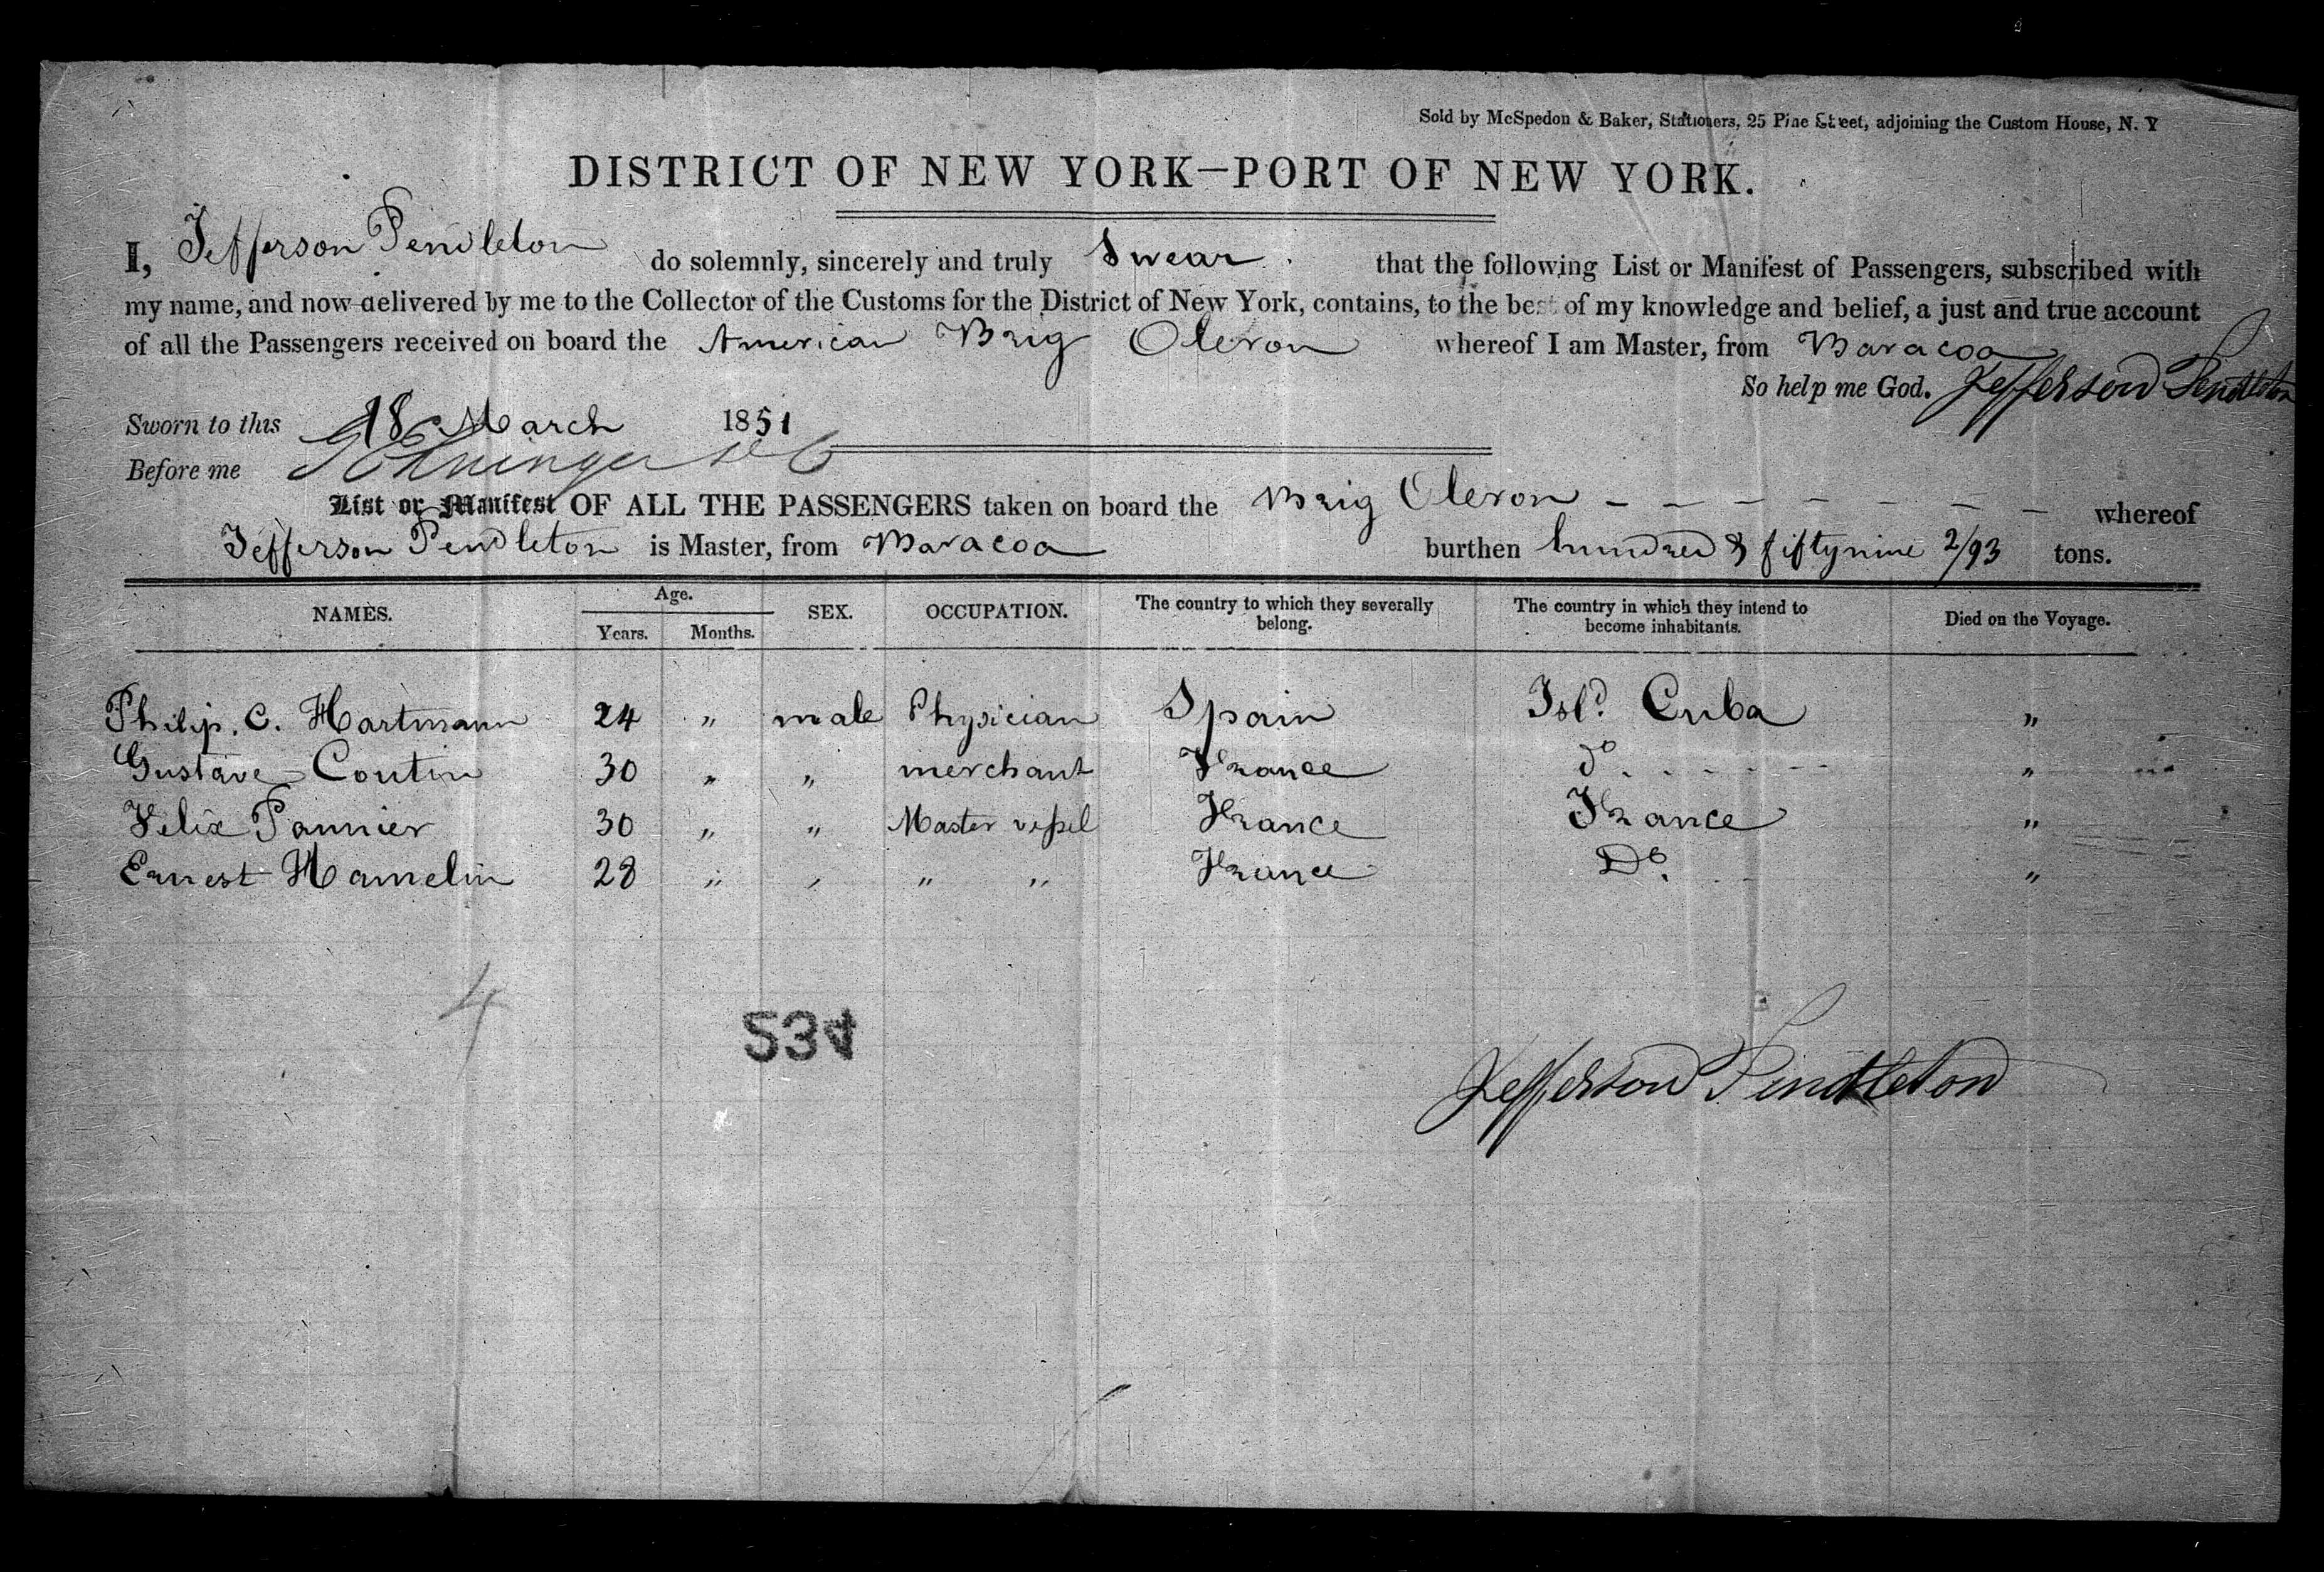 Sold by McSpedon & Baker, Stationers, 25 Pine Street, adjoining the Custom House, N. Y
DISTRICT OF NEW YORK—PORT OF NEW YORK.
I, Jefferson Pendleton do solemnly, sincerely and truly Swear that the following List or Manifest of Passengers, subscribed with
my name, and now delivered by me to the Collector of the Customs for the District of New York, contains, to the best of my knowledge and belief, a just and true account
of all the Passengers received on board the American Brig Oleron whereof I am Master, from Baracoa
So help me God. Jefferson Pendleton
Sworn to this 18 March 1851
Before me
List or Manifest OF ALL THE PASSENGERS taken on board the Brig Oleron - - - - - - - whereof
Jefferson Pendleton is Master, from Baracoa burthen hundred & fiftynine 2/93 tons.
NAMES. Age. Years. Months. SEX. OCCUPATION. The country to which they severally belong. The country in which they intend to become inhabitants. Died on the Voyage.
Philip. C. Hartmann 24 " male Physician Spain Isld. Cuba "
Gustave Coutin 30 " " merchant France do. - - - - - "
Felix Pannier 30 " " Master vessel France France "
Ernest Hamelin 28 " " " " France Do. "
4
534
Jefferson Pendleton